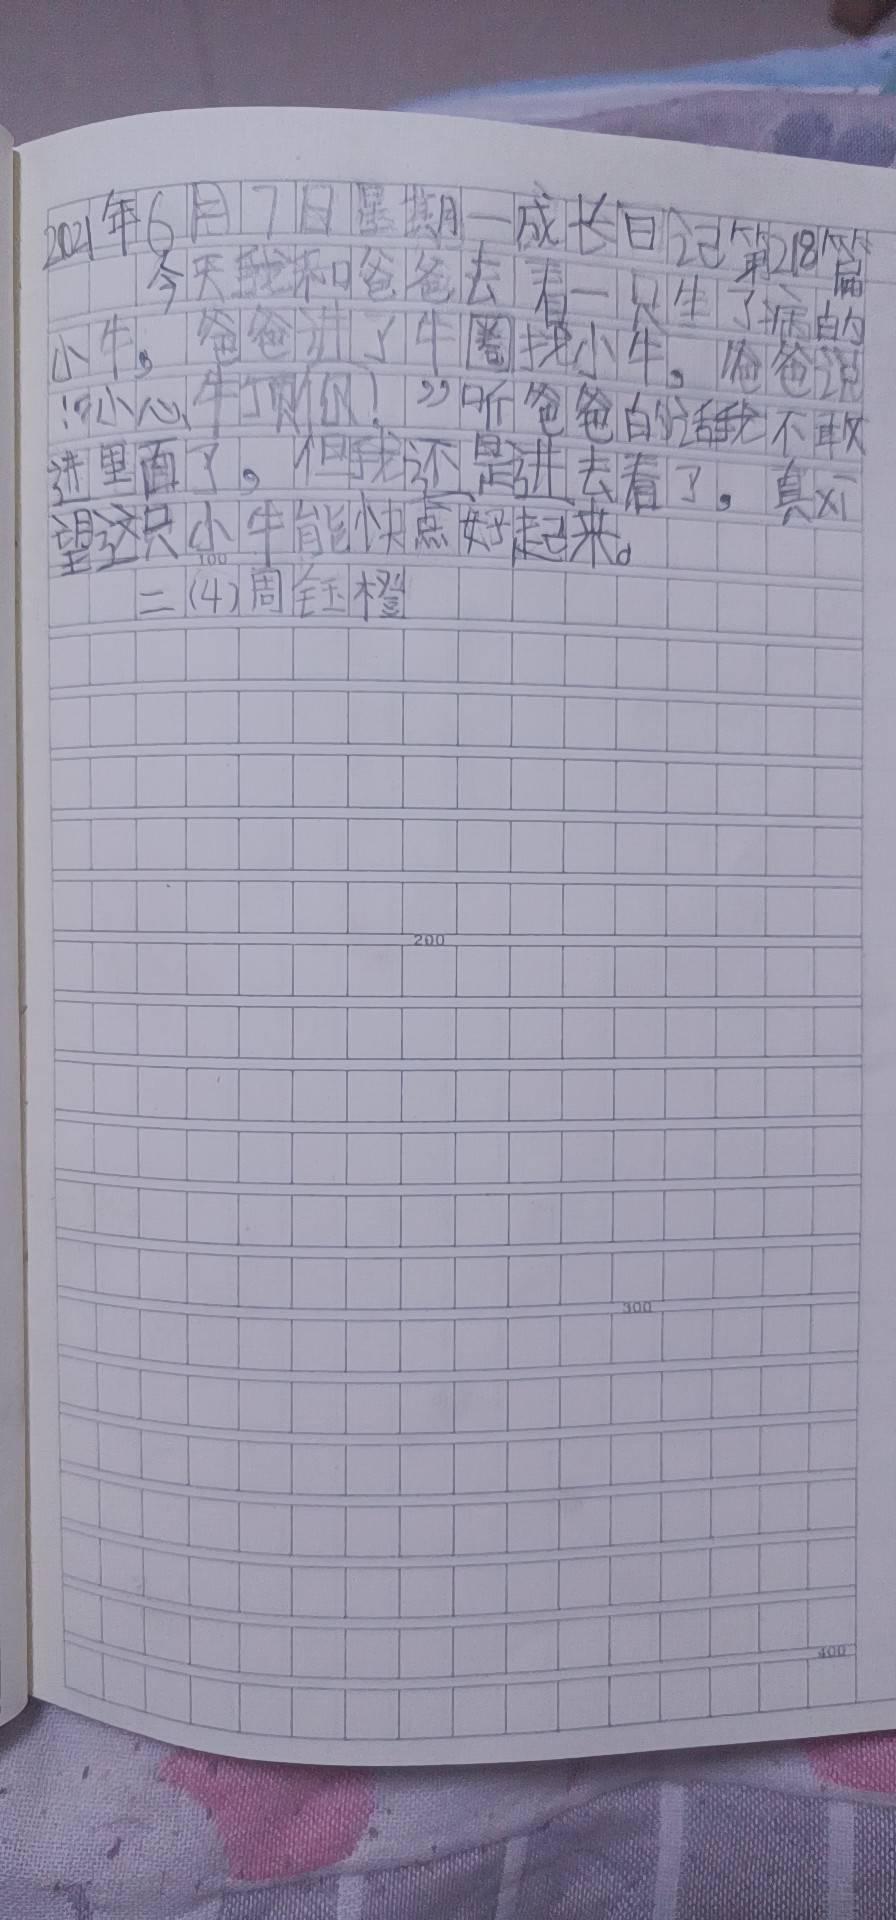 2021年6月7日星期一成长日记第218篇
今天我和爸爸去看一只生了病的
小牛，爸爸进了牛圈找小牛，爸爸说
:“小心牛顶你！”听爸爸的话我不敢
进里面了，但我还是进去看了，真希
望这只小牛能快点好起来。
100
二(4)周钰橙
200
300
400